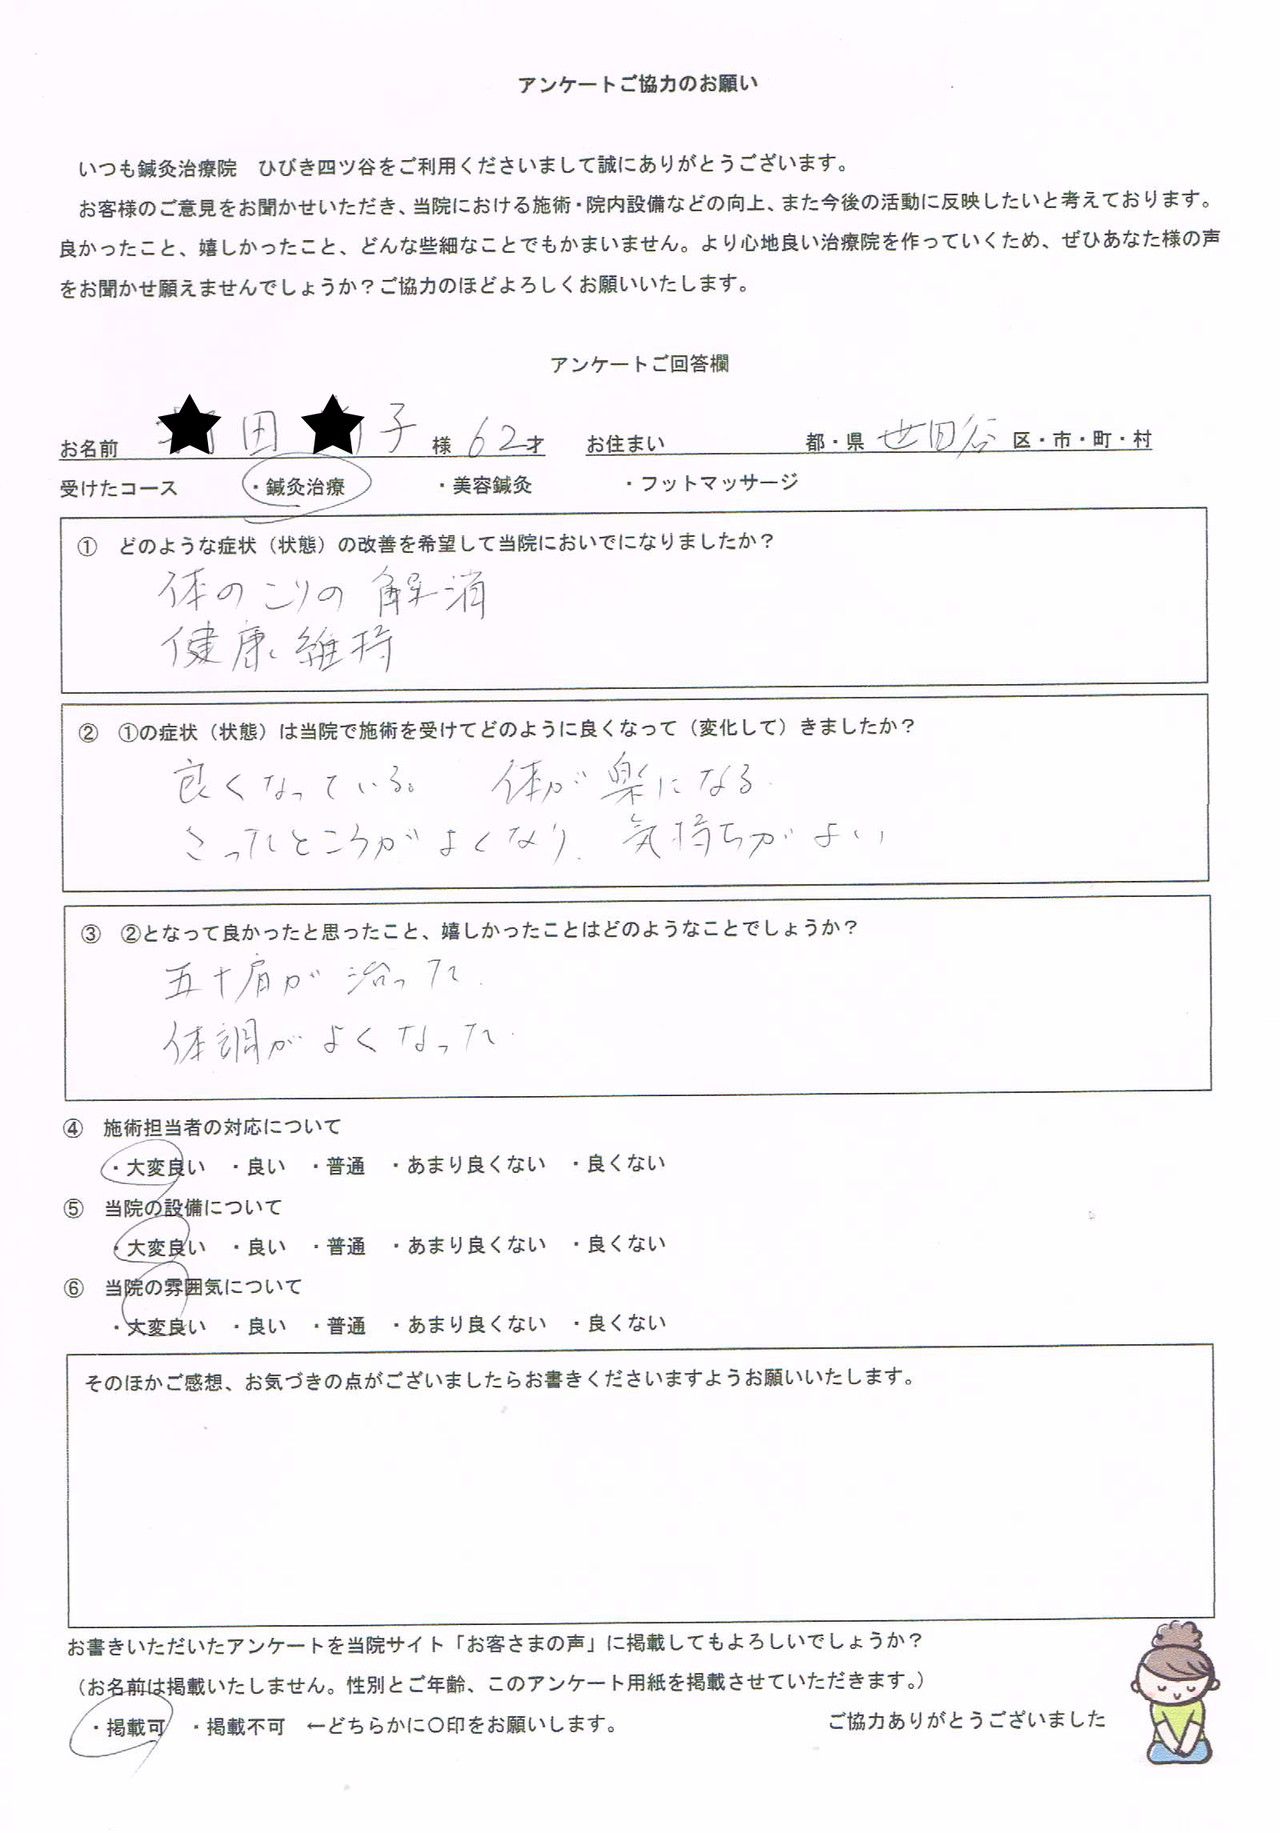 アンケートご協力のお願い
いつも鍼灸治療院　ひびき四ツ谷をご利用くださいまして誠にありがとうございます。
お客様のご意見をお聞かせいただき、当院における施術・院内設備などの向上、また今後の活動に反映したいと考えております。
良かったこと、嬉しかったこと、どんな些細なことでもかまいません。より心地良い治療院を作っていくため、ぜひあなた様の声
をお聞かせ願えませんでしょうか？ご協力のほどよろしくお願いいたします。
アンケートご回答欄
お名前 田 子 様 62才 お住まい 都・県 世田谷 区・市・町・村
受けたコース ・鍼灸治療 ・美容鍼灸 ・フットマッサージ
① どのような症状（状態）の改善を希望して当院においでになりましたか？
体のこりの解消
健康維持
② ①の症状（状態）は当院で施術を受けてどのように良くなって（変化して）きましたか？
良くなっている。 体が楽になる
さったところがよくなり、気持ちがよい
③ ②となって良かったと思ったこと、嬉しかったことはどのようなことでしょうか？
五十肩が治った
体調がよくなった
④ 施術担当者の対応について
・大変良い ・良い ・普通 ・あまり良くない ・良くない
⑤ 当院の設備について
・大変良い ・良い ・普通 ・あまり良くない ・良くない
⑥ 当院の雰囲気について
・大変良い ・良い ・普通 ・あまり良くない ・良くない
そのほかご感想、お気づきの点がございましたらお書きくださいますようお願いいたします。
お書きいただいたアンケートを当院サイト「お客さまの声」に掲載してもよろしいでしょうか？
（お名前は掲載いたしません。性別とご年齢、このアンケート用紙を掲載させていただきます。）
・掲載可 ・掲載不可 ←どちらかに〇印をお願いします。 ご協力ありがとうございました